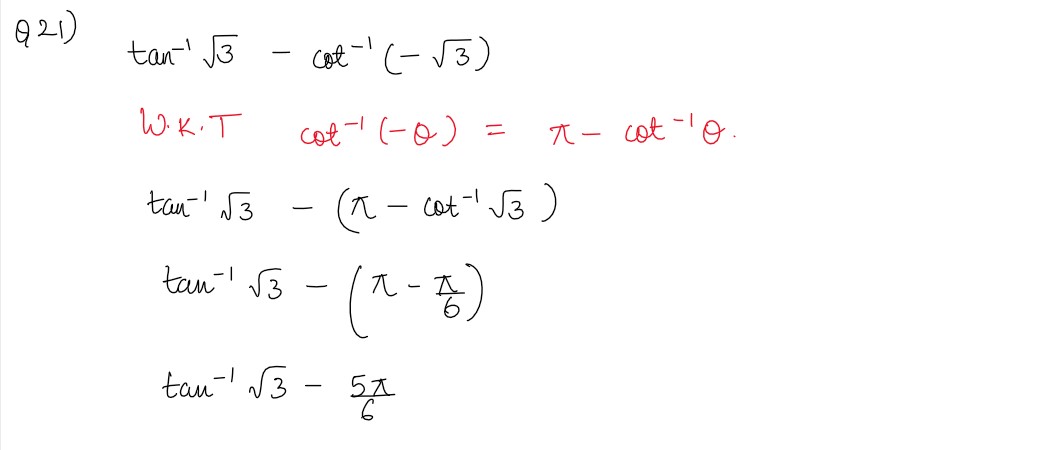 Q21)
tan⁻¹ √3 − cot⁻¹ (− √3)
W.K.T cot⁻¹ (−θ) = π − cot⁻¹ θ.
tan⁻¹ √3 − (π − cot⁻¹ √3)
tan⁻¹ √3 − (π − π/6)
tan⁻¹ √3 − 5π/6